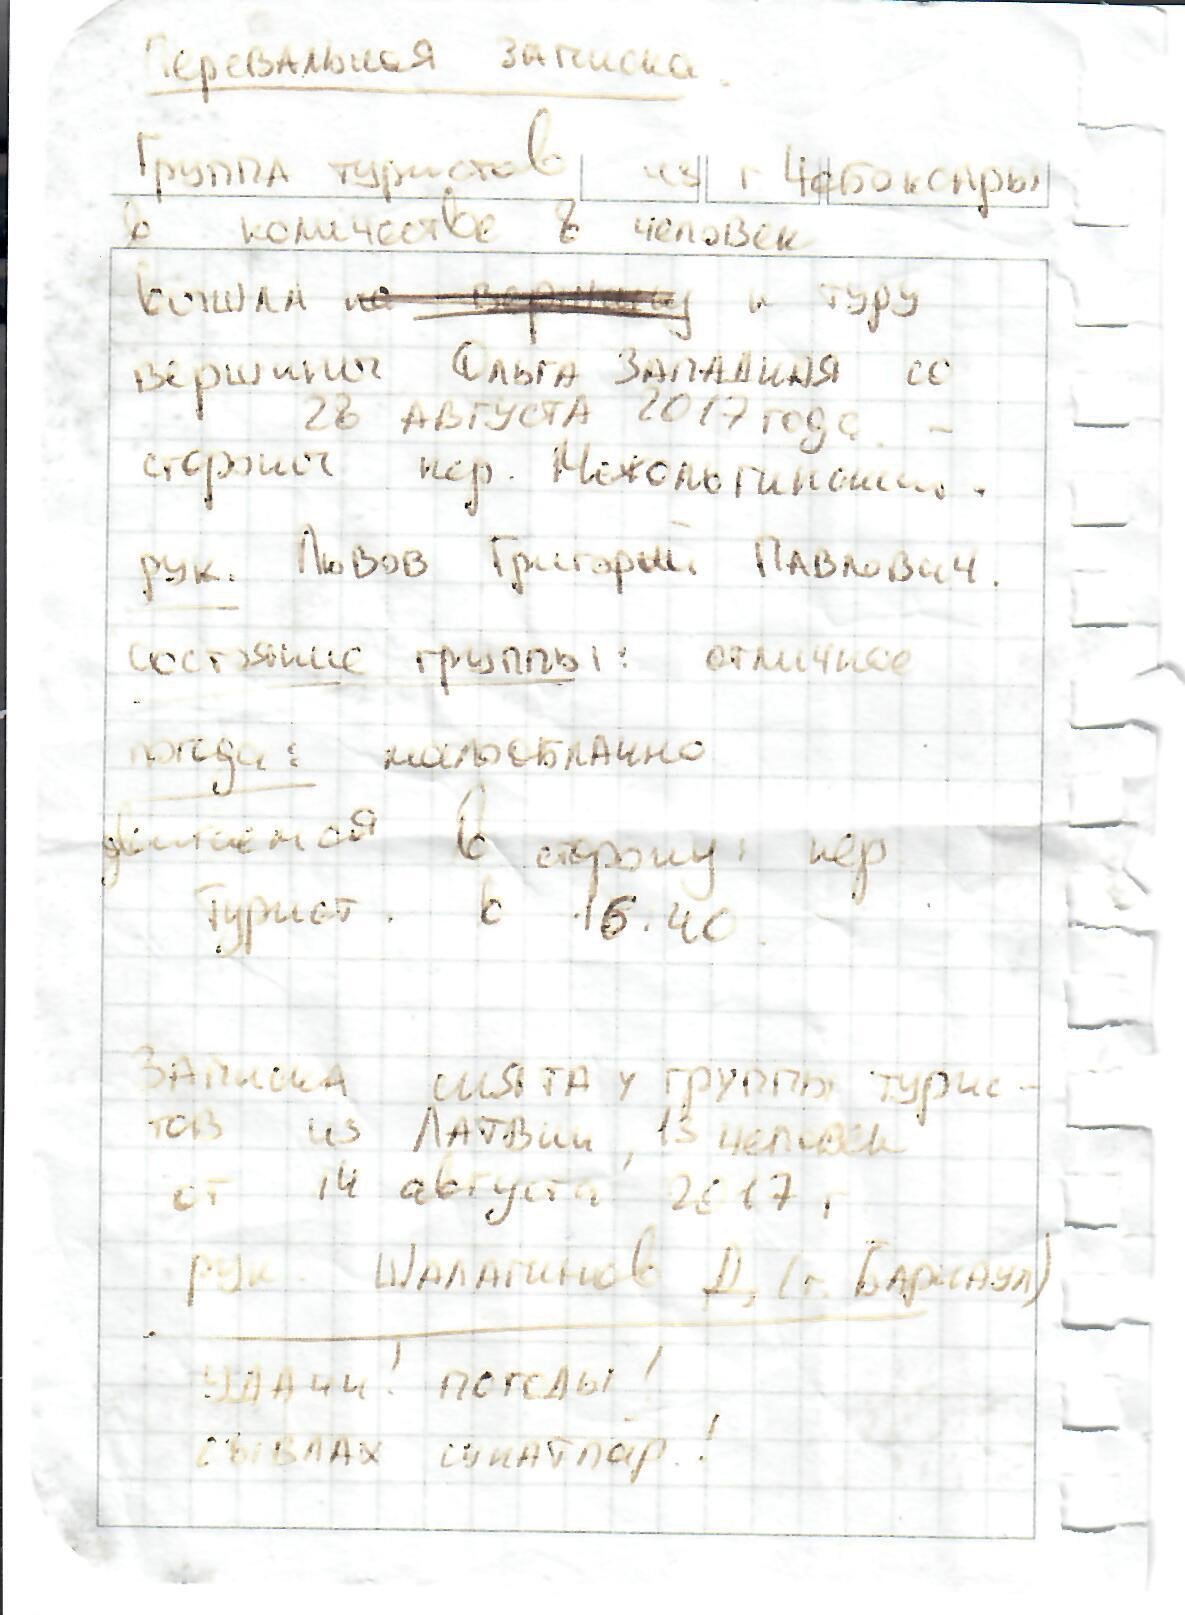 Перевальная записка.
Группа туристов из г Чебоксары
в количестве 8 человек
взошла на вершину к туру
вершины Ольга Западная со
28 августа 2017 года. -
стороны пер. Межольгинский.
рук. Львов Григорий Павлович.
состояние группы: отличное
погода: малооблачно
двигаемся в сторону: пер
Турист. в 16.40.
Записка снята у группы турис-
тов из Латвии, 13 человек
от 14 августа 2017 г
рук. Шалагинов Д, (г. Барнаул)
удачи! погоды!
сывлах сунатпар!